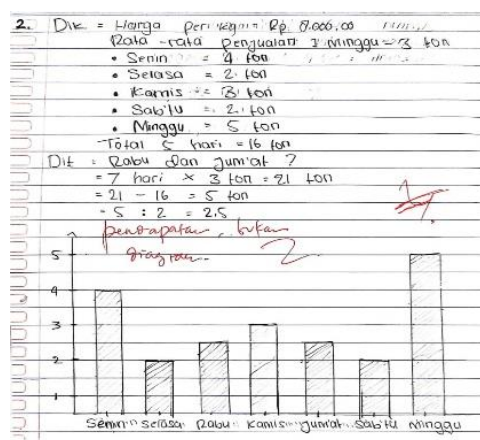 2. Dik = Harga per kegam Rp 8.000,00
Rata-rata penjualan 1 minggu = 3 ton
• Senin = 4 ton
• Selasa = 2 ton
• Kamis = 3 ton
• Sabtu = 2 ton
• Minggu = 5 ton
Total 5 hari = 16 ton
Dit : Rabu dan Jum'at ?
= 7 hari × 3 ton = 21 ton
= 21 - 16 = 5 ton
= 5 : 2 = 2.5
pendapatan, bukan
diagram.
5
4
3
2
1
Senin Selasa Rabu Kamis Jum'at Sabtu Minggu